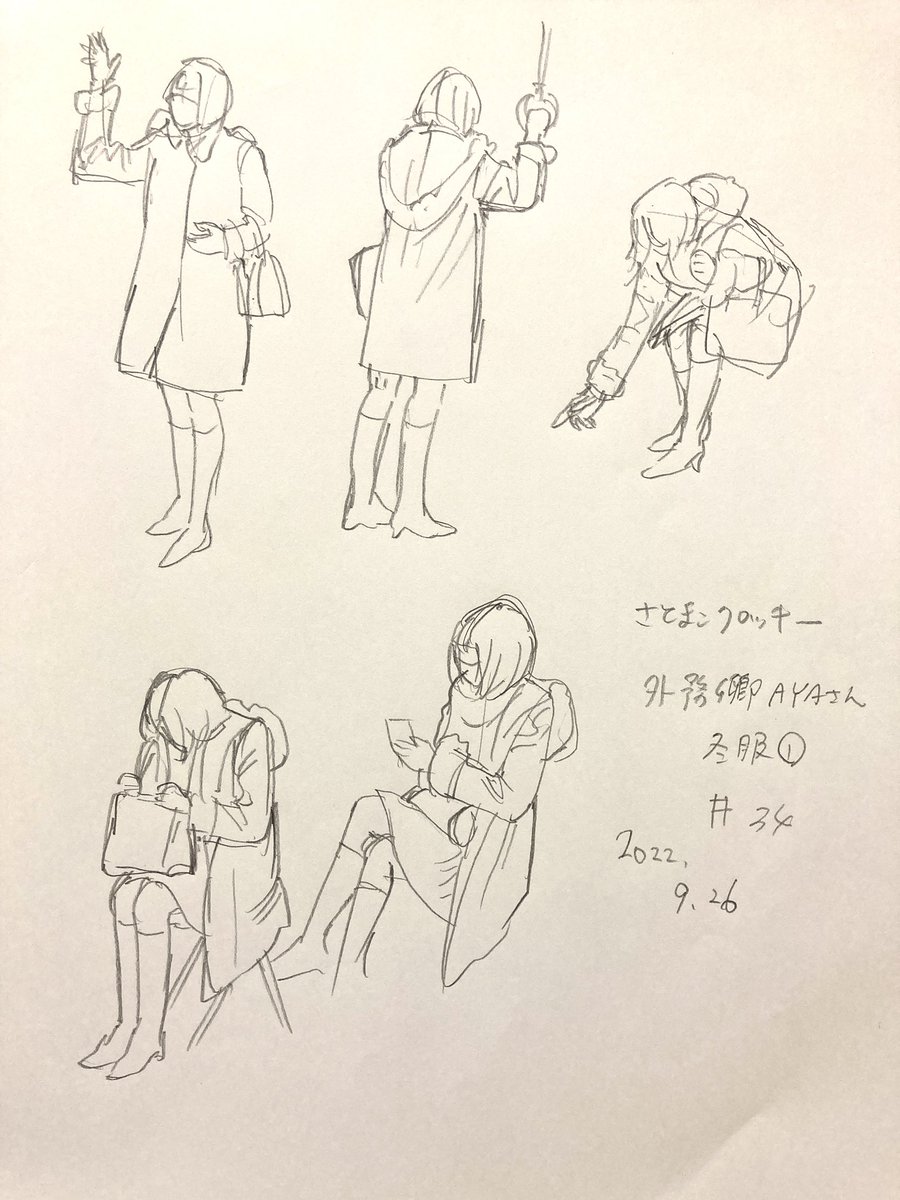 さとまこクロッキー
外務卿AYAさん
冬服①
#34
2022.
9.26